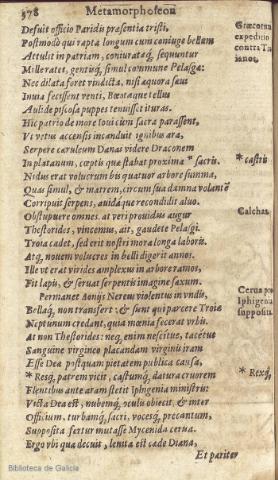 378 Metamorphoseon
Defuit officio Paridis præsentia tristi,
Postmodo qui rapta longum cum coniuge bellum
Attulit in patriam, coniuratæq́; sequuntur
Mille rates, gentisq́; simul commune Pelasgæ:
Nec dilata foret vindicta, nisi æquora sæui
Inuia fecissent venti, Bœotaque tellus
Aulide piscosa puppes tenuisset ituras.
Hic patrio de more Ioui cum sacra parassent,
Vt vetus accensis incanduit ignibus ara,
Serpere cæruleum Danai videre Draconem
In platanum, cœptis quæ stabat proxima * sacris.
Nidus erat volucrum bis quatuor arbore summa,
Quas simul, & matrem, circum sua damna volantē
Corripuit serpens, auidaque recondidit aluo.
Obstupuere omnes. at veri prouidus augur
Thestorides, vincemus, ait, gaudete Pelasgi.
Troia cadet, sed erit nostri mora longa laboris.
Atq́, nouem volucres in belli digerit annos.
Ille vt erat virides amplexus in arbore ramos,
Fit lapis, & seruat serpentis imagine saxum.
Permanet Aonijs Nereus violentus in vndis,
Bellaq́, non transfert: & sunt qui parcere Troiæ
Neptunum credant, quia mœnia fecerat vrbi.
At non Thestorides: neq, enim nescitue, tacetue
Sanguine virgineo placandam virginis iram
Esse Deæ postquam pietatem publica causa,
* Resq́, patrem vicit, castumq́, datura cruorem
Flentibus ante aram stetit Iphigenia ministris:
Victa Dea est, nubemq́, oculis obiecit, & inter
Officium, turbamq́, sacri, vocesq́, precantum,
Supposita fertur mutasse Mycenida cerua.
Ergo vbi qua decuit, lenita est cæde Diana,
Et pariter
Græcorum
expeditio
contra Tro
ianos.
* castris
Calchas.
Cerua pro
Iphigenia
supposita
* Rexq́,
Biblioteca de Galicia